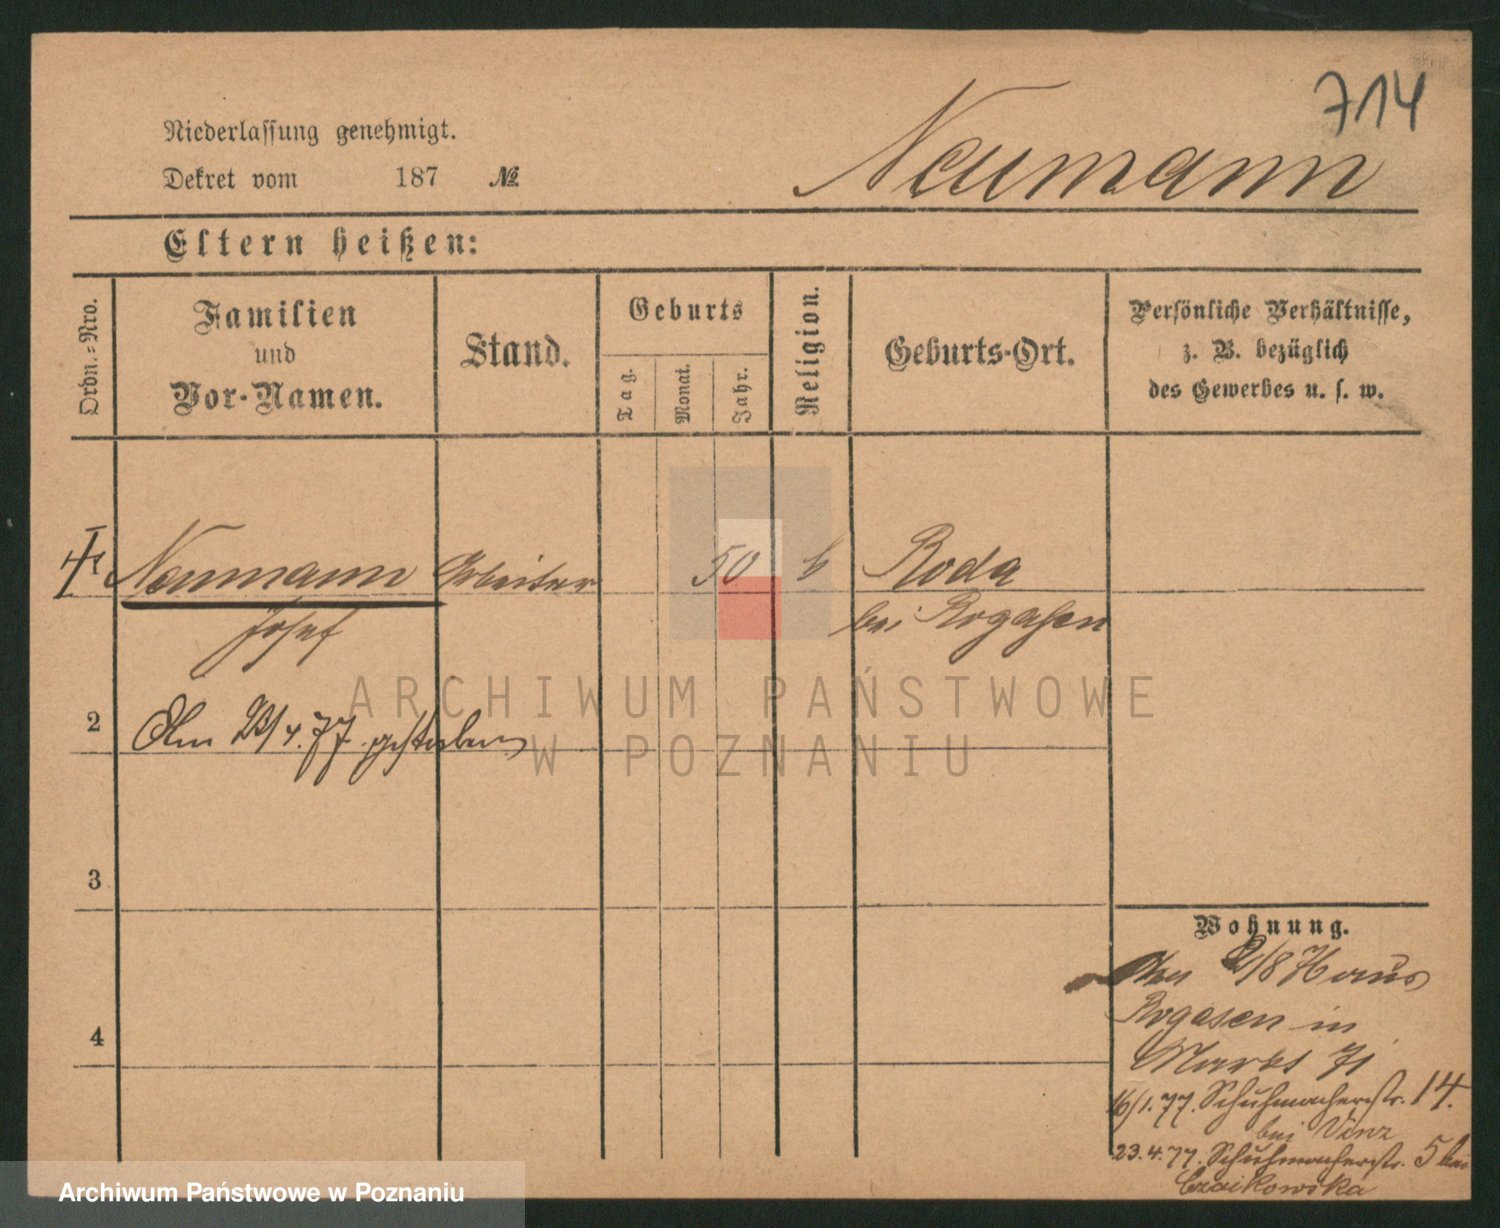 714
Niederlassung genehmigt.
Dekret vom 187 №
Neumann
Eltern heißen:
Ordn.=Nro.
Familien
und
Vor-Namen.
Stand.
Geburts
Tag.
Monat.
Jahr.
Religion.
Geburts-Ort.
Persönliche Verhältnisse,
z. B. bezüglich
des Gewerbes u. s. w.
1 Neumann Arbeiter 50 k Roda
Josef bei Rogasen
ARCHIWUM PAŃSTWOWE
W POZNANIU
2 Am 23/4.77 gestorben
3
4
Wohnung.
/8 Haus
Rogasen in
Markt 71
16/1.77. Schuhmacherstr. 14.
bei
23.4.77. Schuhmacherstr. 5 bei
Czaikowska
Archiwum Państwowe w Poznaniu